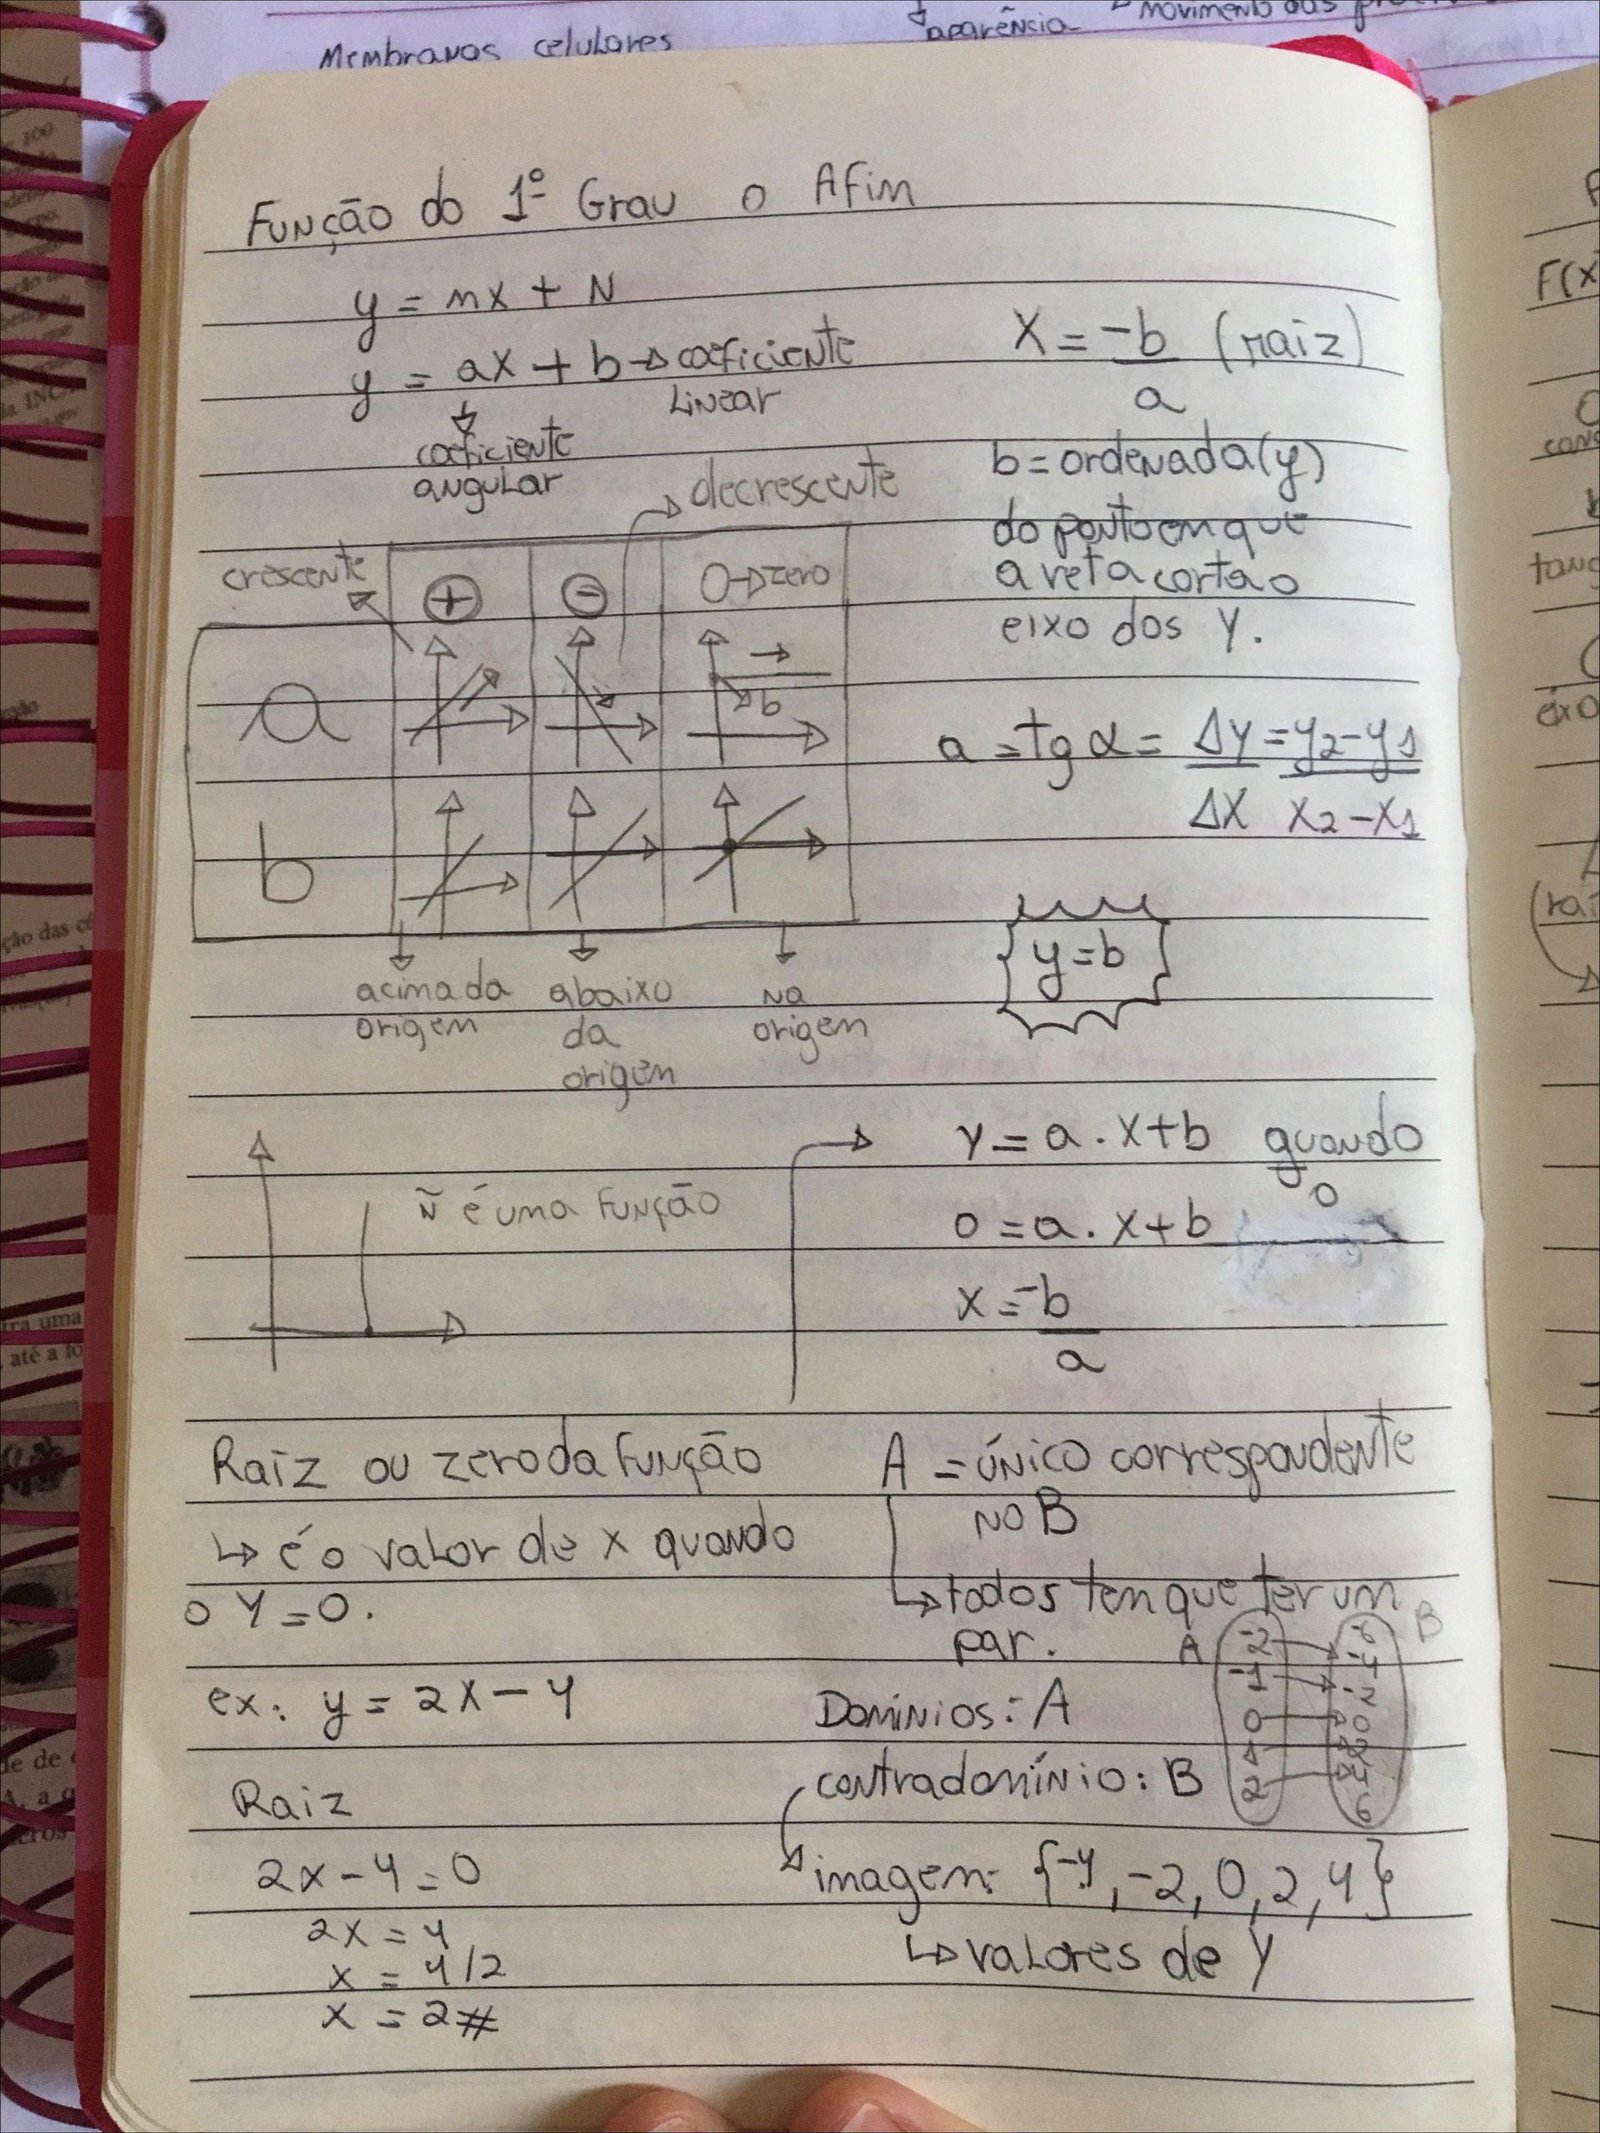 Membranas celulares
aparência
Função do 1º Grau o Afim
y = mx + N
y = ax + b → coeficiente
Linear
coeficiente
angular
x = -b (raiz)
a
b = ordenada (y)
do ponto em que
a reta corta o
eixo dos Y.
decrescente
crescente
+ - 0 → zero
a
b
b
acima da
origem
abaixo
da
origem
na
origem
a = tg α = Δy = y2 - y1
Δx x2 - x1
y = b
Ñ é uma Função
y = a . x + b quando
0
0 = a . x + b
x = -b
a
Raiz ou zero da Função
↳ é o valor de x quando
o Y = 0.
ex: y = 2x - 4
Raiz
2x - 4 = 0
2x = 4
x = 4/2
x = 2#
A = único correspondente
no B
↳ todos tem que ter um
par.
A B
-2 -6
-1 -4
0 -2
1 0
2 2
4
6
Domínios: A
contradomínio: B
imagem: {-4, -2, 0, 2, 4}
↳ valores de Y
F(x